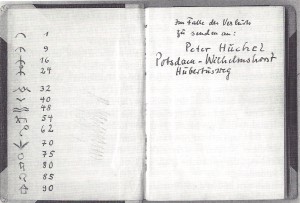 1
9
16
24
32
40
48
54
62
70
75
80
85
90
Im Falle des Verlusts
zu senden an:
Peter Huchel
Potsdam-Wilhelmshorst
Hubertusweg